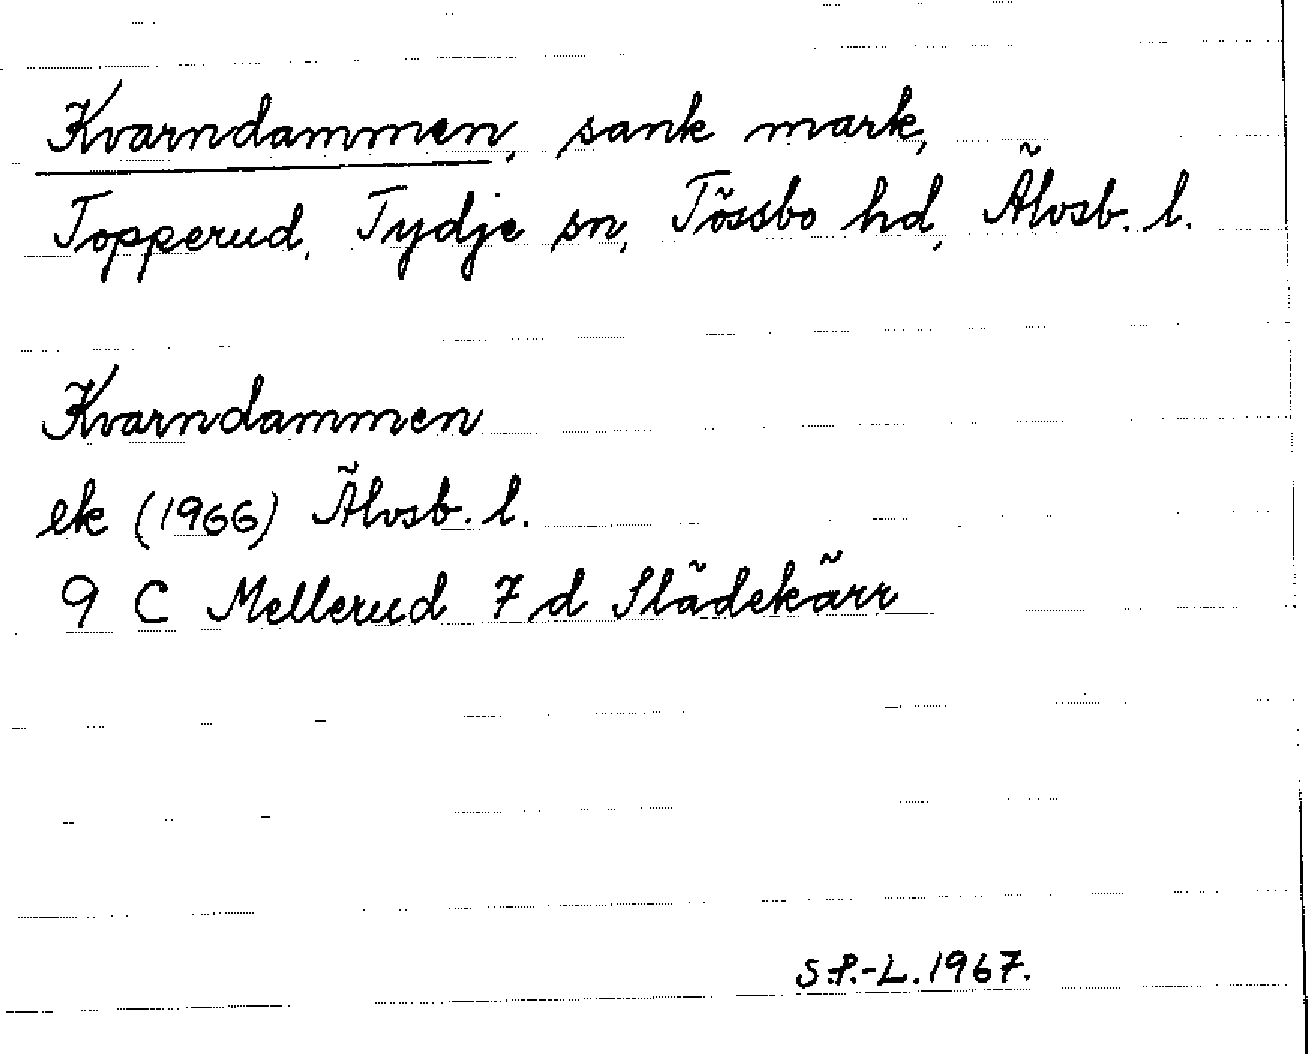 Kvarndammen, sank mark,
Topperud, Tydje sn, Tössbo hd, Älvsb. l.
Kvarndammen
ek (1966) Älvsb. l.
9 C Mellerud 7 d Slädekärr
S.P.-L. 1967.